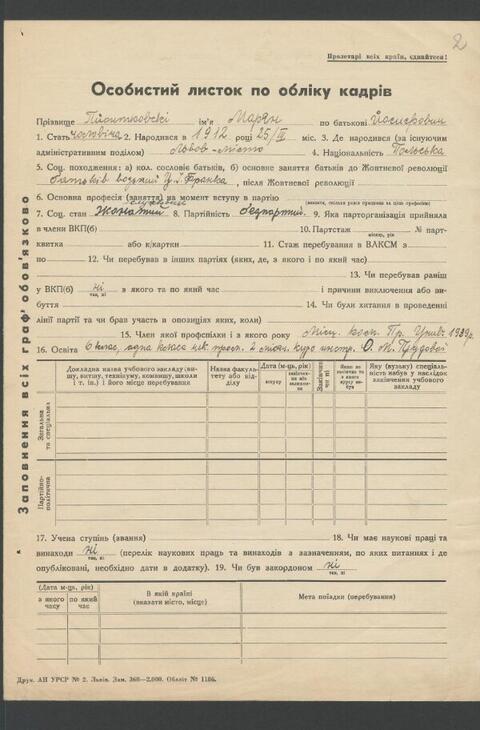 2
Пролетарі всіх країн, єднайтеся!
Особистий листок по обліку кадрів
Прізвище Піонтковскі ім'я Марян по батькові Йосифович
1. Стать чоловіча 2. Народився в 1912 році 25/III міс. 3. Де народився (за існуючим
адміністративним поділом) Львов-місто 4. Національність Польська
5. Соц. походження: а) кол. сословіє батьків, б) основне заняття батьків до Жовтневої революції
, після Жовтневої революції
6. Основна професія (заняття) на момент вступу в партію службовий
(вказати, скільки років працював на цією професією)
7. Соц. стан Жонатий 8. Партійність безпартій. 9. Яка парторганізація прийняла
в члени ВКП(б) 10. Партстаж № парт-
місяць, рік
квитка або к/картки 11. Стаж перебування в ВЛКСМ з
по 12. Чи перебував в інших партіях (яких, де, з якого і по який час)
13. Чи перебував раніш
у ВКП(б) ні з якого та по який час і причини виключення або ви-
так, ні
буття 14. Чи були хитання в проведенні
лінії партії та чи брав участь в опозиціях яких, коли)
15. Член якої профспілки і з якого року Місц. ком. Пр. Унів. 1939р.
16. Освіта 6 клас,
Докладна назва учбового закладу (ви-
шу, втишу, технікуму, комвишу, школи
і т. ін.) і його місце перебування
Назва факуль-
тету або від-
ділу
Дата (м-ць, рік)
вступу
Закінчив
чи ні
Яку (вузьку) спеціаль-
ність набув у наслідок
закінчення учбового
закладу
Загальна
та спеціальна
Партійно-
політична
17. Учена ступінь (звання) 18. Чи має наукові праці та
винаходи ні (перелік наукових праць та винаходів з зазначенням, по яких питаннях і де
так, ні
опубліковані, необхідно дати в додатку). 19. Чи був закордоном ні
так, ні
(Дата м-ць, рік)
з якого часу
по який час
В якій країні
(вказати місто, місце)
Мета поїздки (перебування)
Друк. АН УРСР № 2. Львів. Зам. 360—2.000. Обліт № 1186.
Заповнення всіх граф обов'язково